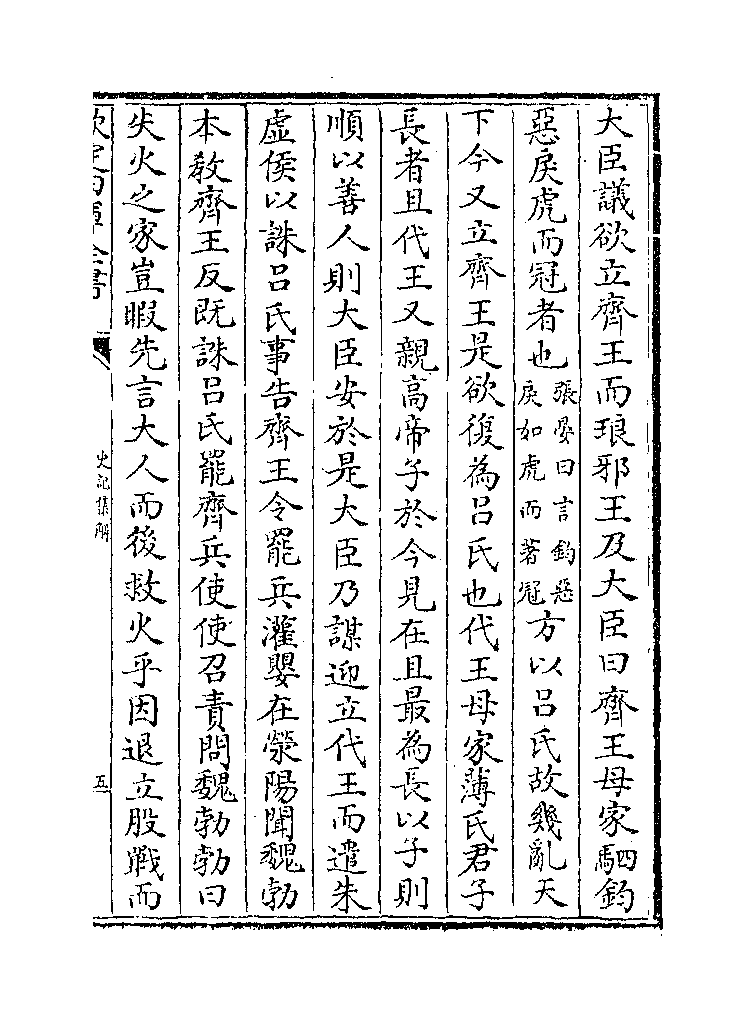 大臣議欲立齊王而琅邪王及大臣曰齊王母家駟鈞
惡戾虎而冠者也張晏曰言鈞惡戾如虎而著冠方以吕氏故幾亂天
下今又立齊王是欲復為吕氏也代王母家薄氏君子
長者且代王又親高帝子於今見在且最為長以子則
順以善人則大臣安於是大臣乃謀迎立代王而遣朱
虛侯以誅吕氏事告齊王令罷兵灌嬰在滎陽聞魏勃
本教齊王反既誅吕氏罷齊兵使使召責問魏勃勃曰
失火之家豈暇先言大人而後救火乎因退立股戰而
欽定四庫全書
史記集解
五